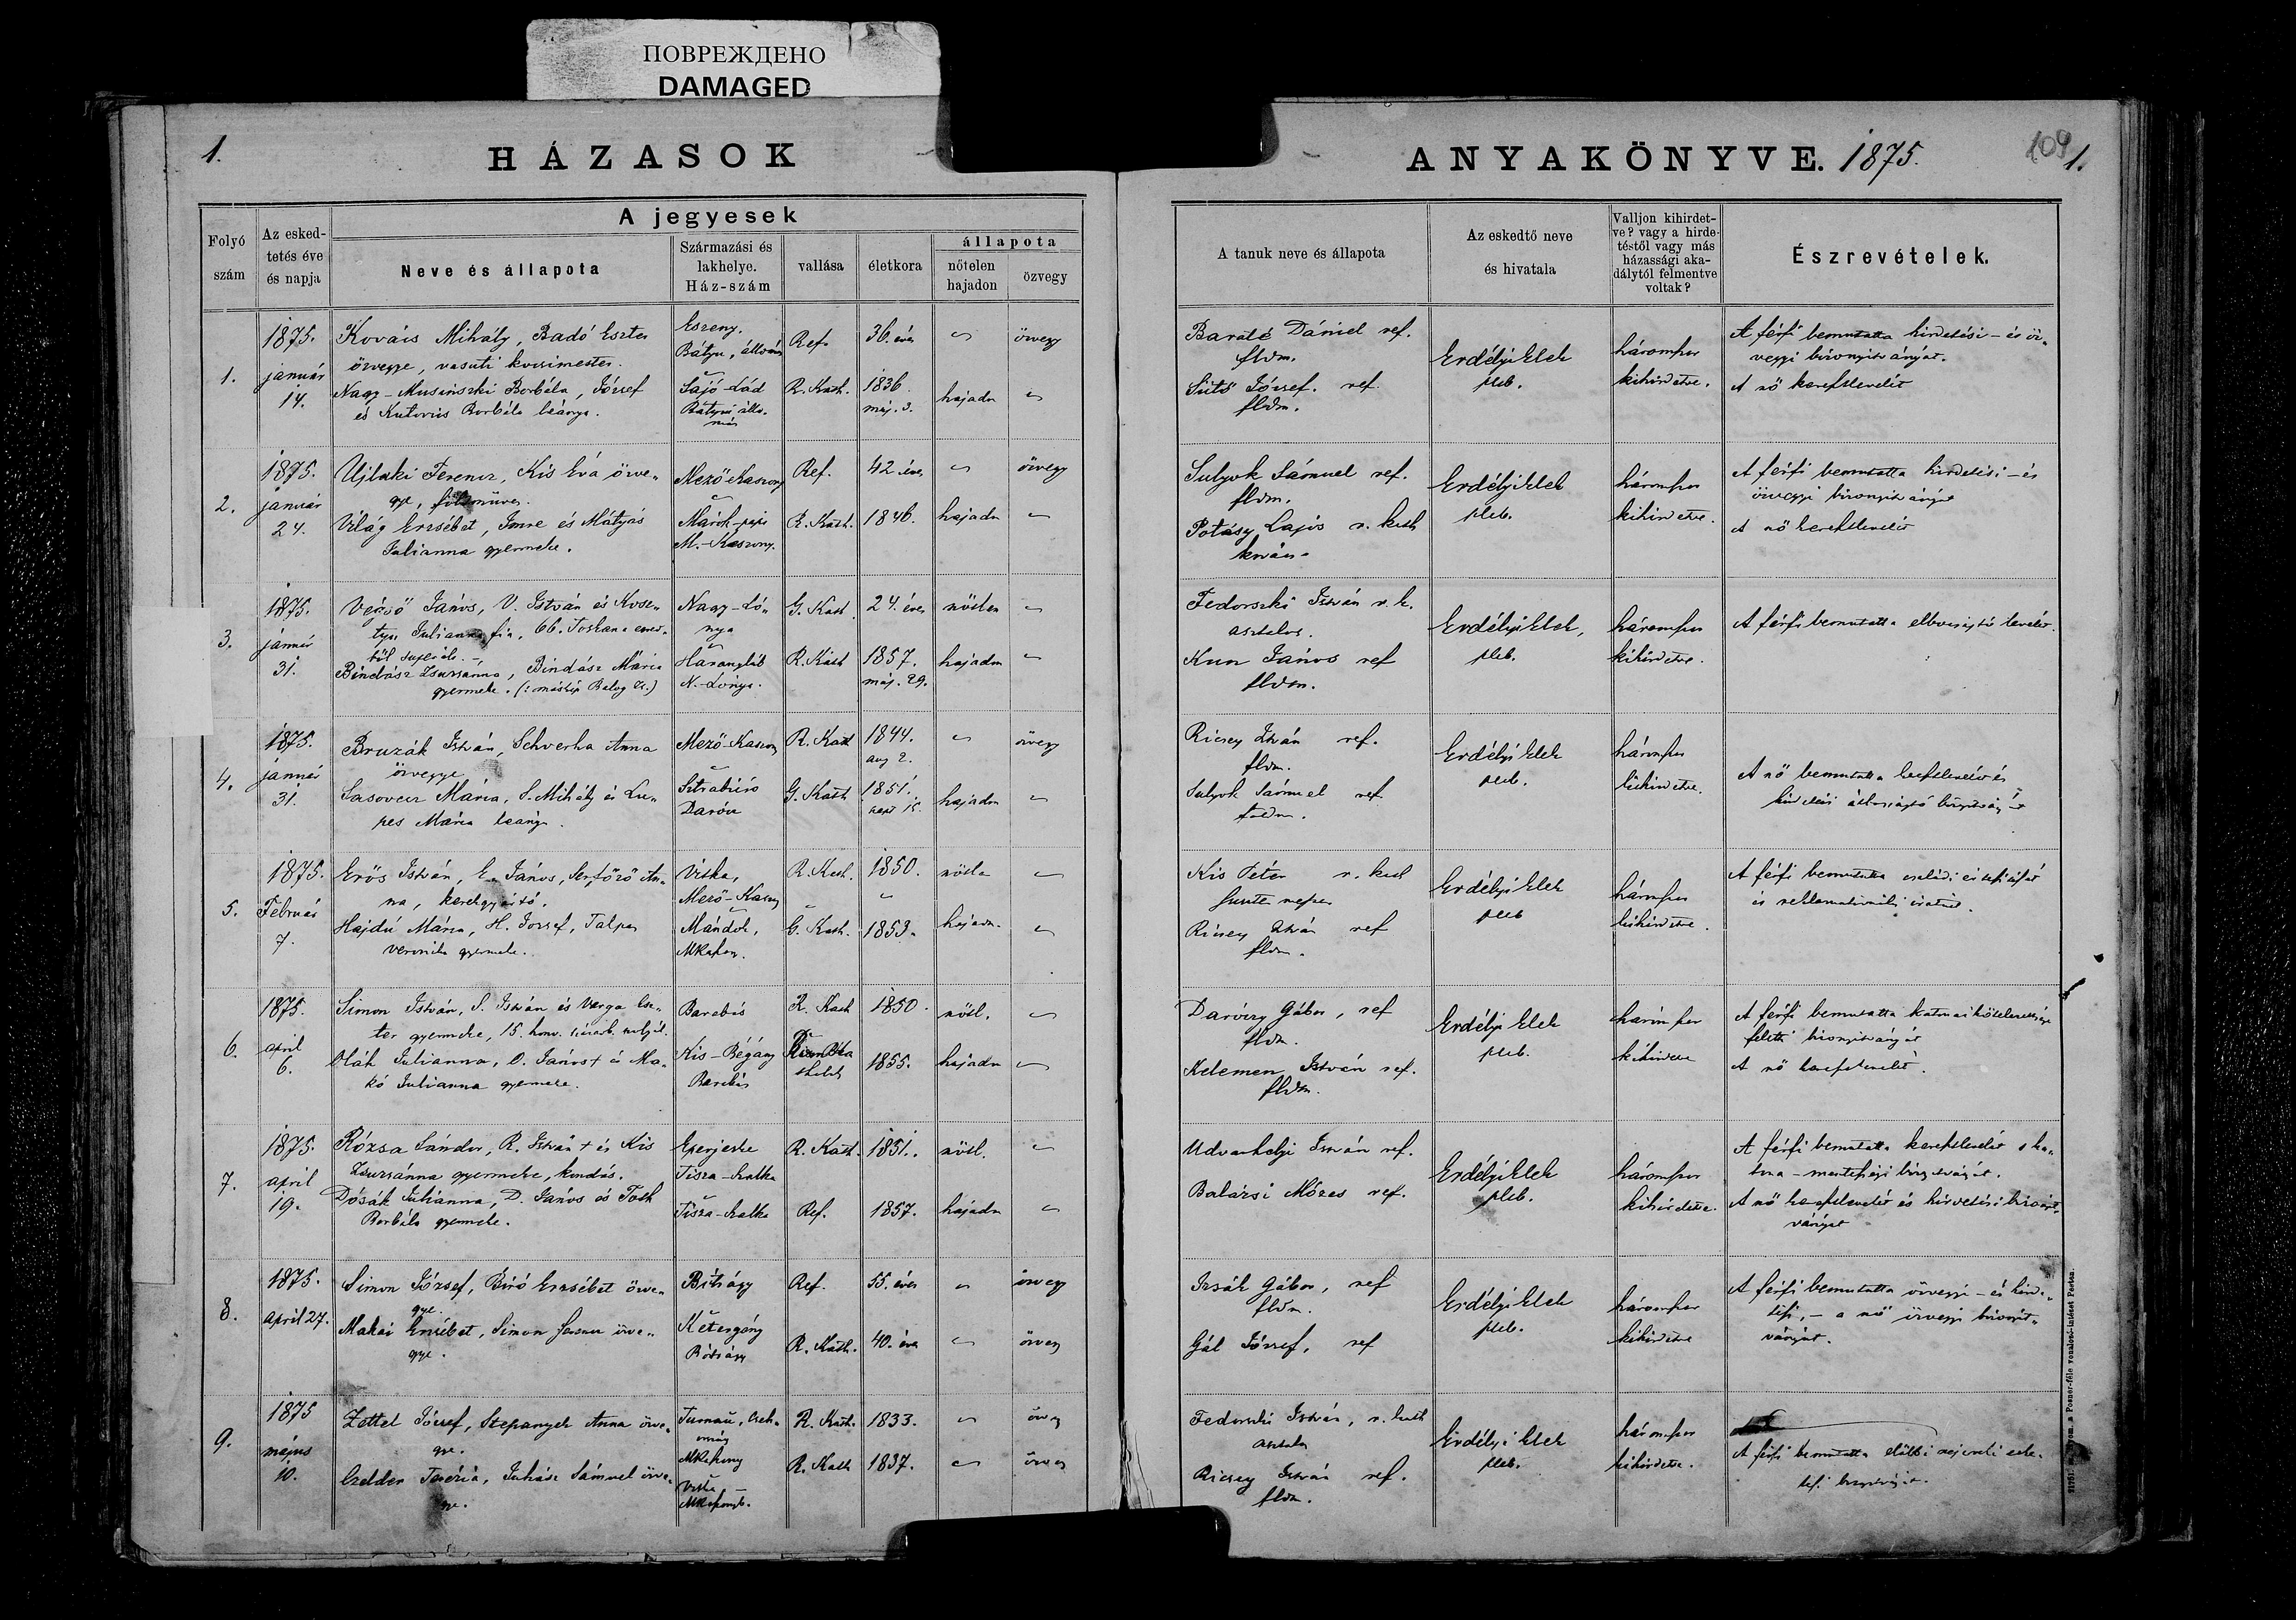 ПОВРЕЖДЕНО
DAMAGED
1.
HÁZASOK
ANYAKÖNYVE. 1875.
109
1.
Folyó szám
Az esked-
tetés éve
és napja
A jegyesek
Neve és állapota
Származási és
lakhelye.
Ház-szám
vallása
életkora
állapota
nőtelen
hajadon
özvegy
A tanuk neve és állapota
Az eskedtő neve
és hivatala
Valljon kihirdet-
ve? vagy a hirde-
téstől vagy más
házassági aka-
dálytól felmentve
voltak?
Észrevételek.
1.
1875.
január
14.
Kovács Mihály, Badó Eszter
özvegye, vasuti kocsimester.
Nagy-Musinszki Borbéla, József
és Kutorús Borbéla leánya.
Eszeny.
Bátyu, állomás
Sajó-Lád
Bátyui állo-
más
Ref.
R. Kath.
36. éves
1836.
máj. 3.
hajadn
özvegy
Baráté Dániel ref.
fldm.
Sütő József. ref.
fldm.
Erdélyi Elek
pleb.
háromszor
kihirdetve.
A férfi bemutatta hirdetési - és öz-
vegyi bizonyitványát.
A nő keresztlevelét
2.
1875.
január
24.
Ujlaki Ferencz, Kis Éva özve-
gye, földmüves.
Világ Erzsébet, Imre és Mátyás
Julianna gyermeke.
Mező-Kaszony
Márok-papi
M.-Kaszony.
Ref.
R. Kath.
42. éves
1846.
hajadn
özvegy
Sulyok Sámuel ref.
fldm.
Potásy Lajos r. kath
Erdélyi Elek
pleb.
háromszor
kihirdetve.
A férfi bemutatta hirdetési - és
özvegyi bizonyitványát
A nő keresztlevelét
3.
1875.
január
31.
Végső János, V. István és Kosz-
Julianna fia, 66.
Bindász Zsuzsanna, Bindász Mária
gyermeke. (: máskép Balog Zs.)
Nagy-Ló-
nya
Harangláb
N.-Lónya.
G. Kath
R. Kath
24. éves
1857.
máj. 29.
nőtlen
hajadon
Fedorszki István r. k.
asztalos.
Kun János ref
fldm.
Erdélyi Elek,
pleb.
háromszor
kihirdetve.
A férfi bemutatta elbocsájtó levelét.
4.
1875.
január
31.
Bruzák István, Schverha Anna
özvegye
Sasovecz Mária, S. Mihály és Lu-
pes Mária leánya.
Mező-Kaszony
Sztrabicsó
Daróc
R. Kath
G. Kath
1844.
aug 2.
1851.
sept 15.
hajadon
özvegy
Ricsey István ref.
fldm.
Sulyok Sámuel ref
földm.
Erdélyi Elek
pleb.
háromszor
kihirdetve.
A nő bemutatta keresztlevelét és
5.
1875.
Február
7.
Erős István, E. János, An-
na, kerékgyártó.
Hajdú Mária, H. József, Talpas
Veronika gyermeke.
Vitka,
Mező-Kaszony
Mándok,
MKaszony.
R. Kath.
G. Kath.
1850.
1853.
nőtlen
hajadn.
Kis Péter r. kath
Ricsey István ref
fldm.
Erdélyi Elek
pleb
háromszor
kihirdetve.
A férfi bemutatta családi értesítőjét
6.
1875.
april
6.
Simon István, S. István és Varga Esz-
ter gyermeke, 15. honv.
Oláh Julianna, O. János† és Ma-
kó Julianna gyermeke.
Barabás
Kis-Bégány
Barabás
R. Kath
1850.
1855.
nőtl.
hajadn
Daróczy Gábor, ref
fldm.
Kelemen István ref.
fldm.
Erdélyi Elek
pleb.
háromszor
kihirdetve
A férfi bemutatta katonai kötelezettsége
feletti bizonyitványát
A nő keresztlevelét.
7.
1875.
april
19.
Rózsa Sándor, R. István† és Kis
Zsuzsánna gyermeke, kondás.
Dósák Julianna, D. János és Toth
Borbála gyermeke.
Eperjeske
Tisza-Szalka
Tisza-Szalka
R. Kath.
Ref.
1851.
1857.
nőtl.
hajadn
Udvarhelyi István ref.
Balázsi Mózes ref.
Erdélyi Elek
pleb.
háromszor
kihirdetve.
A férfi bemutatta keresztlevelét s ka-
tona-mentességi bizonyitványát.
A nő keresztlevelét és hirdetési bizonyit-
ványát
8.
1875.
april 27.
Simon József, Biró Erzsébet özve-
gye.
Makai Erzsébet, Simon özve-
gye.
Bótrágy
Kétergény
Bótrágy
Ref.
R. Kath.
55. éves
40. éves
özvegy
özvegy
Izsák Gábor, ref
fldm.
Gál József, ref
Erdélyi Elek
pleb.
háromszor
kihirdetve
A férfi bemutatta özvegyi - és hirde-
tési, - a nő özvegyi bizonyit-
ványát.
9.
1875
május
10.
Zettel József, Stepanyek Anna özve-
gye.
Czelder Terézia, Juhász Sámuel özve-
gye.
Turnau, Cseh-
ország
MKaszony
Vitka
MKaszony.
R. Kath.
R. Kath
1833.
1837.
özvegy
özvegy
Fedorszki István, r. kath
asztalos
Ricsey István ref.
fldm.
Erdélyi Elek
pleb.
háromszor
kihirdetve.
A férfi bemutatta